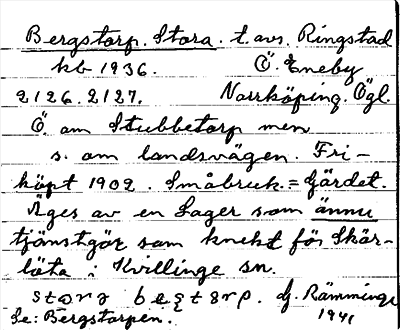 Bergstorp. Stora. t. avs. Ringstad
kb 1936. Ö. Eneby
2126. 2127. Norrköping. Ögl.
Ö. om Stubbetorp men
s. om landsvägen. Fri-
köpt 1902. Småbruk. = Gärdet.
Äges av en Lager som ännu
tjänstgör som knekt för Skär-
löta i Kvillinge sn.
Rämminge
Se: Bergstorpen. 1941